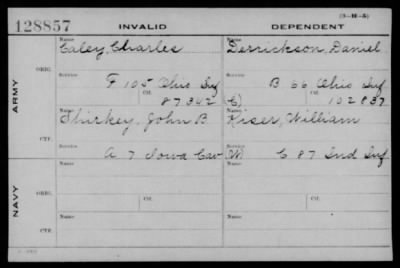 (3-H-5)
128857 INVALID DEPENDENT
Name Name
Caley, Charles Derrickson, Daniel
ORIG.
Service Service
F 105 Ohio Inf B 66 Ohio Inf
Ctf. Ctf.
87342 (C) 102837
ARMY
Name Name
Shirkey, John B. Kiser, William
CTF.
Service Service
A 7 Iowa Cav (W) C 87 Ind Inf
NAVY
Name Name
ORIG.
Ctf. Ctf.
Name Name
CTF.